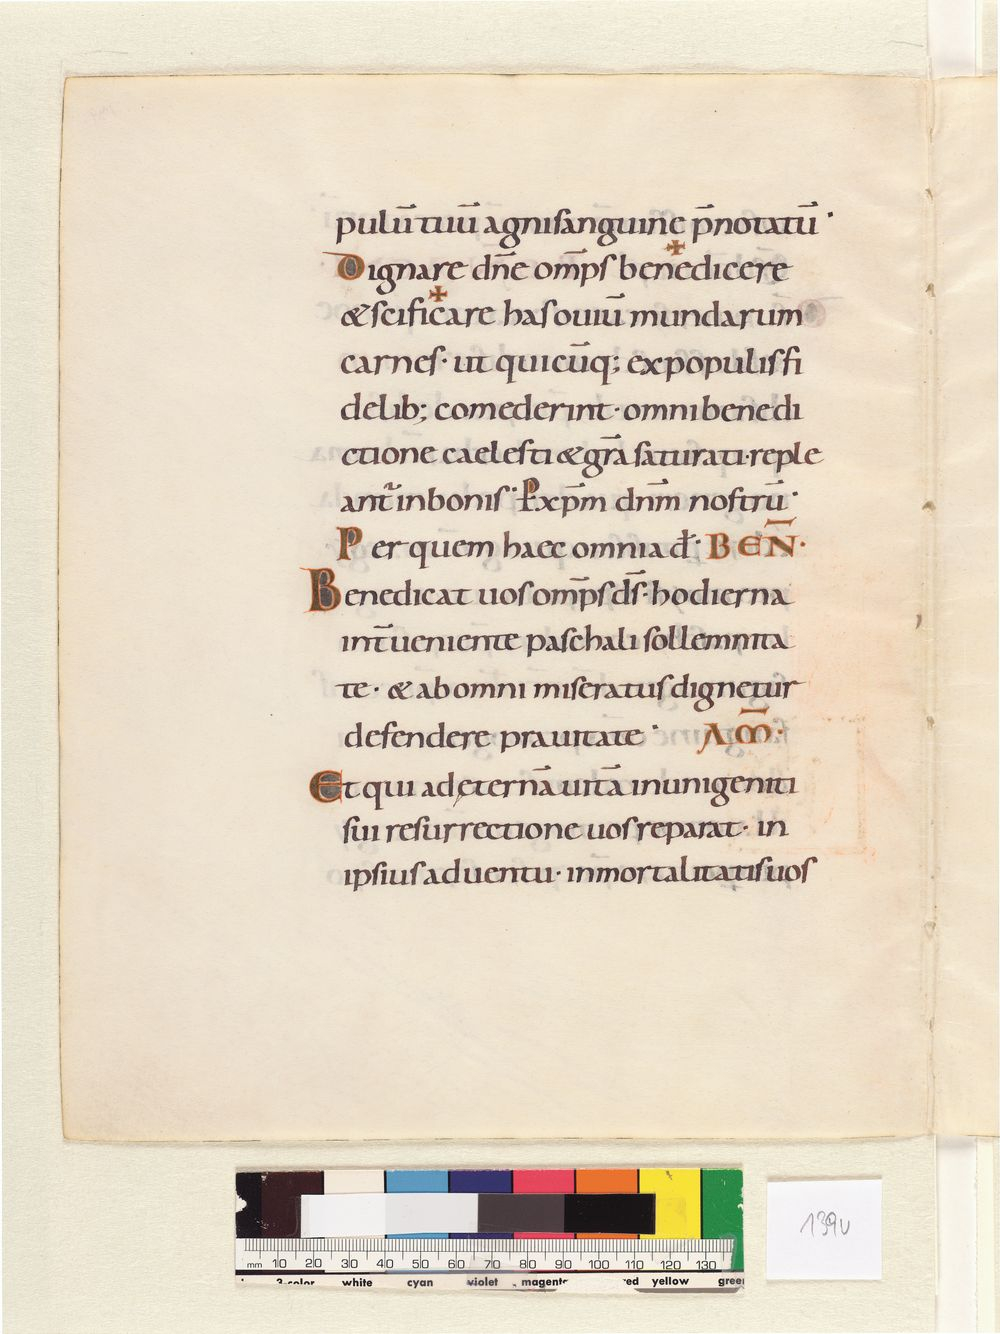 pulū tuū agni sanguine p̄notatū·
Dignare dn̄e om̄ps benedicere
& sc̄ificare has ouiū mundarum
carnes· ut quicūq; ex populis fi
delib; comederint· omni benedi
ctione caelesti & gr̄a saturati· reple
ant᷑ in bonis· P xp̄m dn̄m nostrū·
Per quem haec omnia đ· BEN̄·
Benedicat uos om̄ps ds̄· hodierna
int̄ueniente paschali sollemnita
te· & ab omni miseratus dignetur
defendere prauitate· AM̄·
Et qui ad ęternā uitā in unigeniti
sui resurrectione uos reparat· in
ipsius aduentu· inmortalitatis uos
139v
mm 10 20 30 40 50 60 70 80 90 100 110 120 130
3-color white cyan violet magenta red yellow green